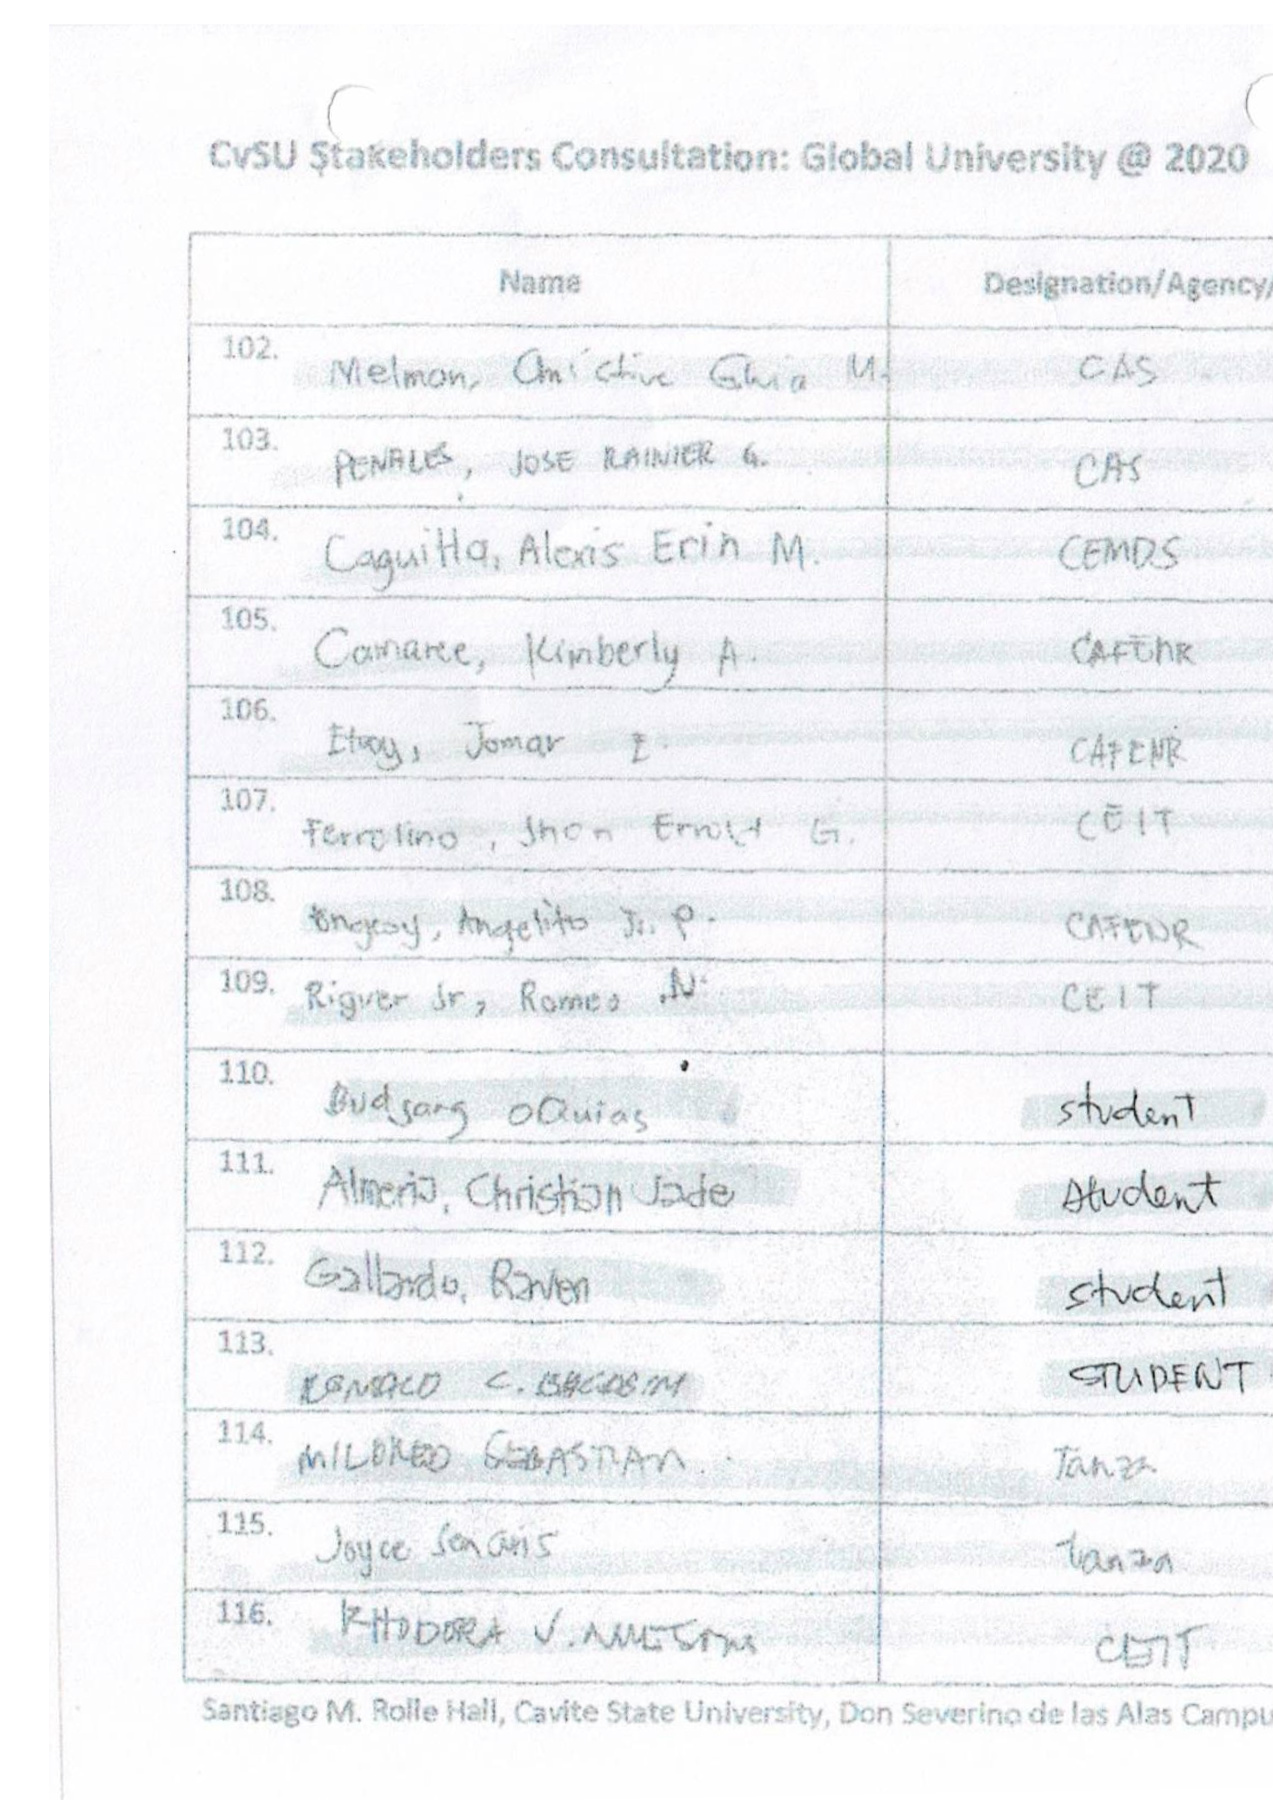 CvSU Stakeholders Consultation: Global University @ 2020
Name Designation/Agency/
102. M. CAS
103. PENALES, JOSE RAINIER G. CAS
104. Alexis Erin M. CEMDS
105. Kimberly A. CAFENR
106. Jomar E. CAFENR
107. Ferrolino, Jhon G. CEIT
108. Angelito Jr. P. CAFENR
109. Jr, Romeo N. CEIT
110. student
111. Almeria, Christian Jade student
112. Gallardo, Raven student
113. C. STUDENT
114. MILDRED SEBASTIAN Tanza
115. Joyce Tanza
116. RHODORA V. CEIT
Santiago M. Rolle Hall, Cavite State University, Don Severino de las Alas Campu